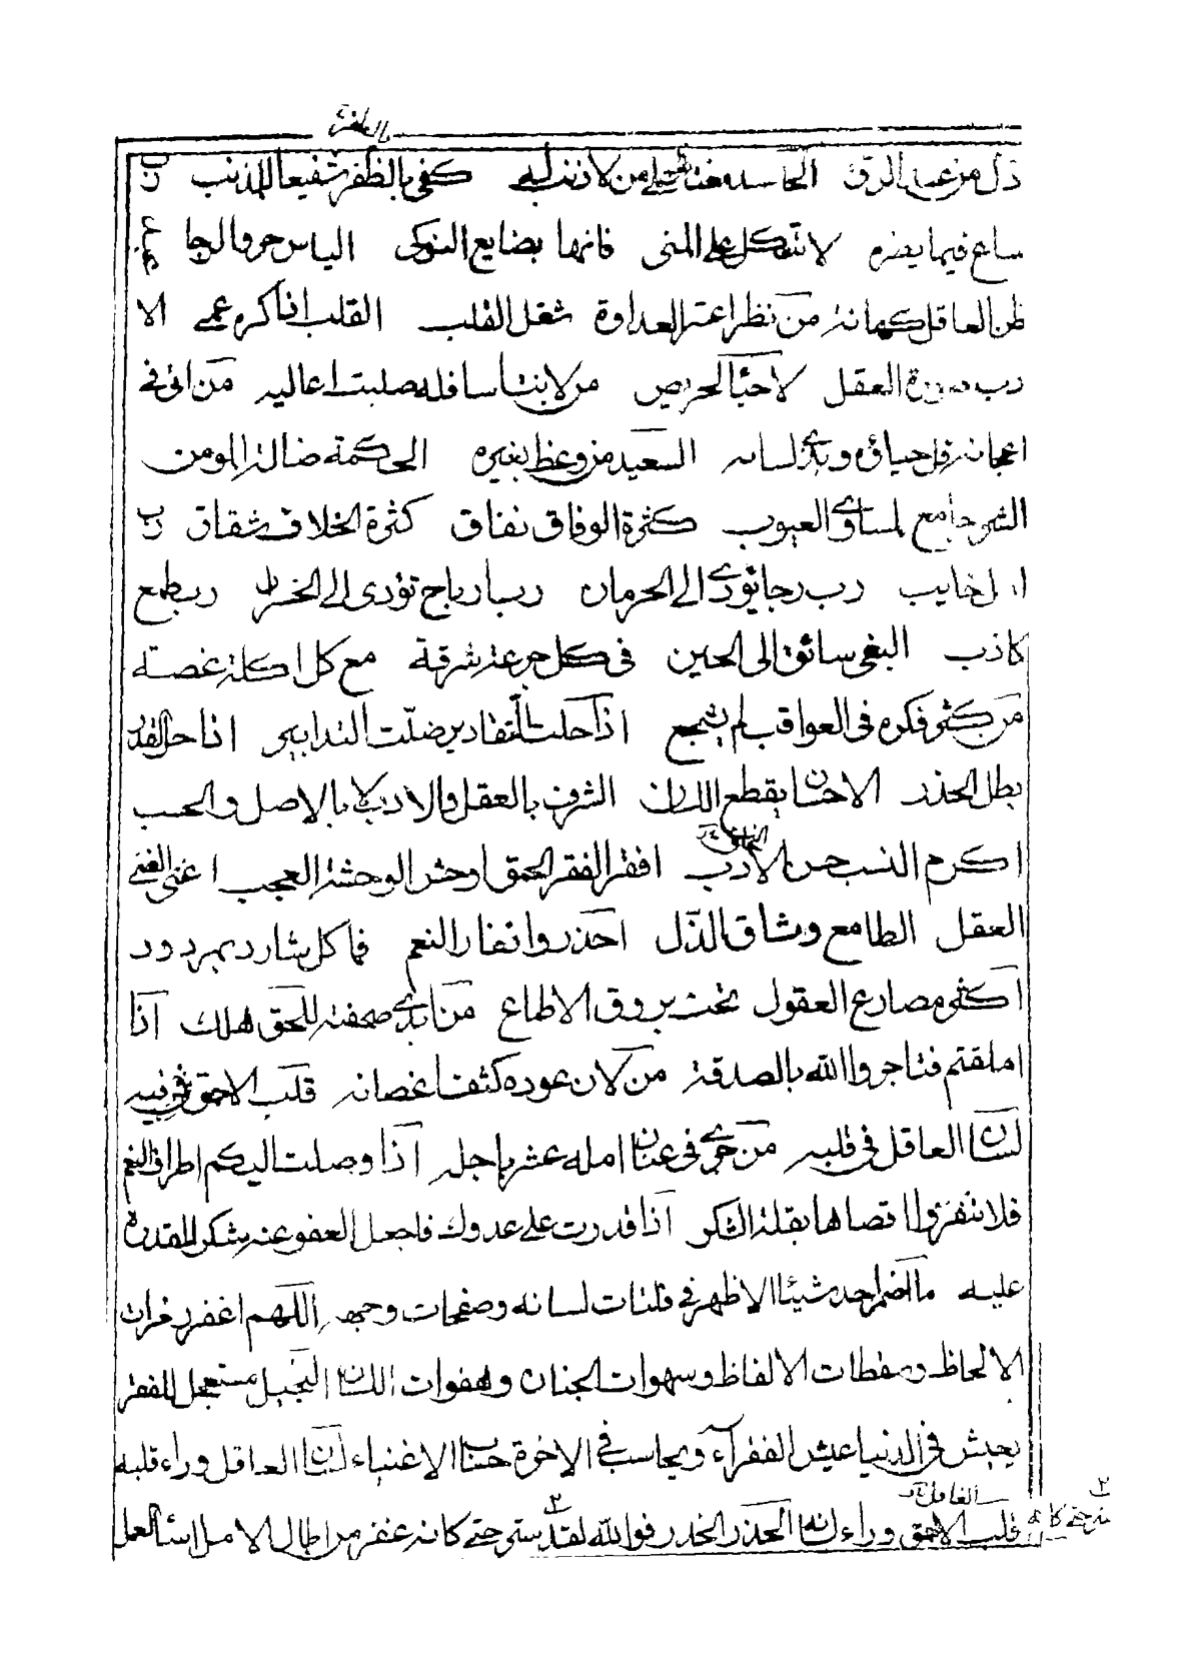 بالظفر
ذل من عبد الرق الحاسد مغتاظ على من لا ذنب له كفى بالظفر شفيعا للمذنب رب
ساع فيما يضره لا تتكل على المنى فانها بضايع النوكى الياس حر والرجا عبد
ظن العاقل كهانة من نظر اعتبر العداوة شغل القلب القلب اذا كره عمي الا
دب صورة العقل لا حيا لحريص من لانت اسافله صلبت اعاليه من اتى في
عجانه قل حياؤه وبذى لسانه السعيد من وعظ بغيره الحكمة ضالة المومن
الشر جامع لمساوي العيوب كثرة الوفاق نفاق كثرة الخلاف شقاق رب
امل خايب رب رجا يؤدي الى الحرمان رب ارباح تؤدى الى الخسران رب طمع
كاذب البغى سائق الى الحين فى كل جرعة شرقة مع كل اكلة غصة
من كثر فكره فى العواقب لم يشجع اذا حلت التقادير ضلت التدابير اذا حل القدر
بطل الحذر الاحسان يقطع اللسان الشرف بالعقل والادب لا بالاصل والحسب
اكرم النسب حسن الادب افقر الفقر الحمق اوحش الوحشة العجب اغنى الغنى
العقل الطامع وثاق الذل احذروا نفار النعم فما كل شارد بمردود
اكثر مصارع العقول تحت بروق الاطماع من ابدى صفحته للحق هلك اذا
املقتم فتاجروا الله بالصدقة من لان عوده كثف اغصانه قلب الاحمق في فيه
لسان العاقل فى قلبه من جرى فى عنان امله عثر باجله اذا وصلت اليكم اطراف النعم
فلا تنفروا اقصاها بقلة الشكر اذا قدرت على عدوك فاجعل العفو عنه شكر المقدرة
عليه ما اضمر احد شيئا الا ظهر في فلتات لسانه وصفحات وجهه اللهم اغفر رمزات
الالحاظ وسقطات الالفاظ وسهوات الجنان وهفوات اللسان البخيل مستعجل للفقر
يعيش فى الدنيا عيش الفقراء ويحاسب في الاخرة حساب الاغنياء لسان العاقل وراء قلبه
قلب الاحمق وراء لسانه الحذر الحذر فوالله لقد ستر حتى كانه غفر من اطال الامل اساء العمل
ستر حتى كانه